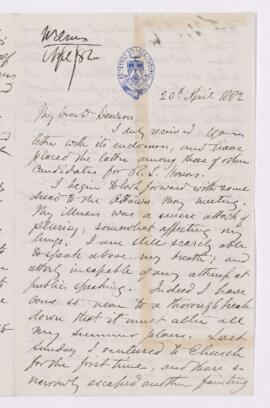 Wilson
Apl/82
20th April 1882
My dear Dr Dawson
I duly received your
letter with its enclosure, and have
placed the latter among those of other
Candidates for R. S. Honors.
I begin to look forward with some
dread to the Ottawa May meeting.
My illness was a severe attack of
pleurisy, somewhat affecting my
lungs. I am still scarcely able
to speak above my breath; and
utterly incapable of any attempt at
public speaking. Indeed I have
come so near to a thorough break
down that it must alter all
my summer plans. Last
Sunday I ventured to Church
for the first time, and there so
narrowly escaped another fainting